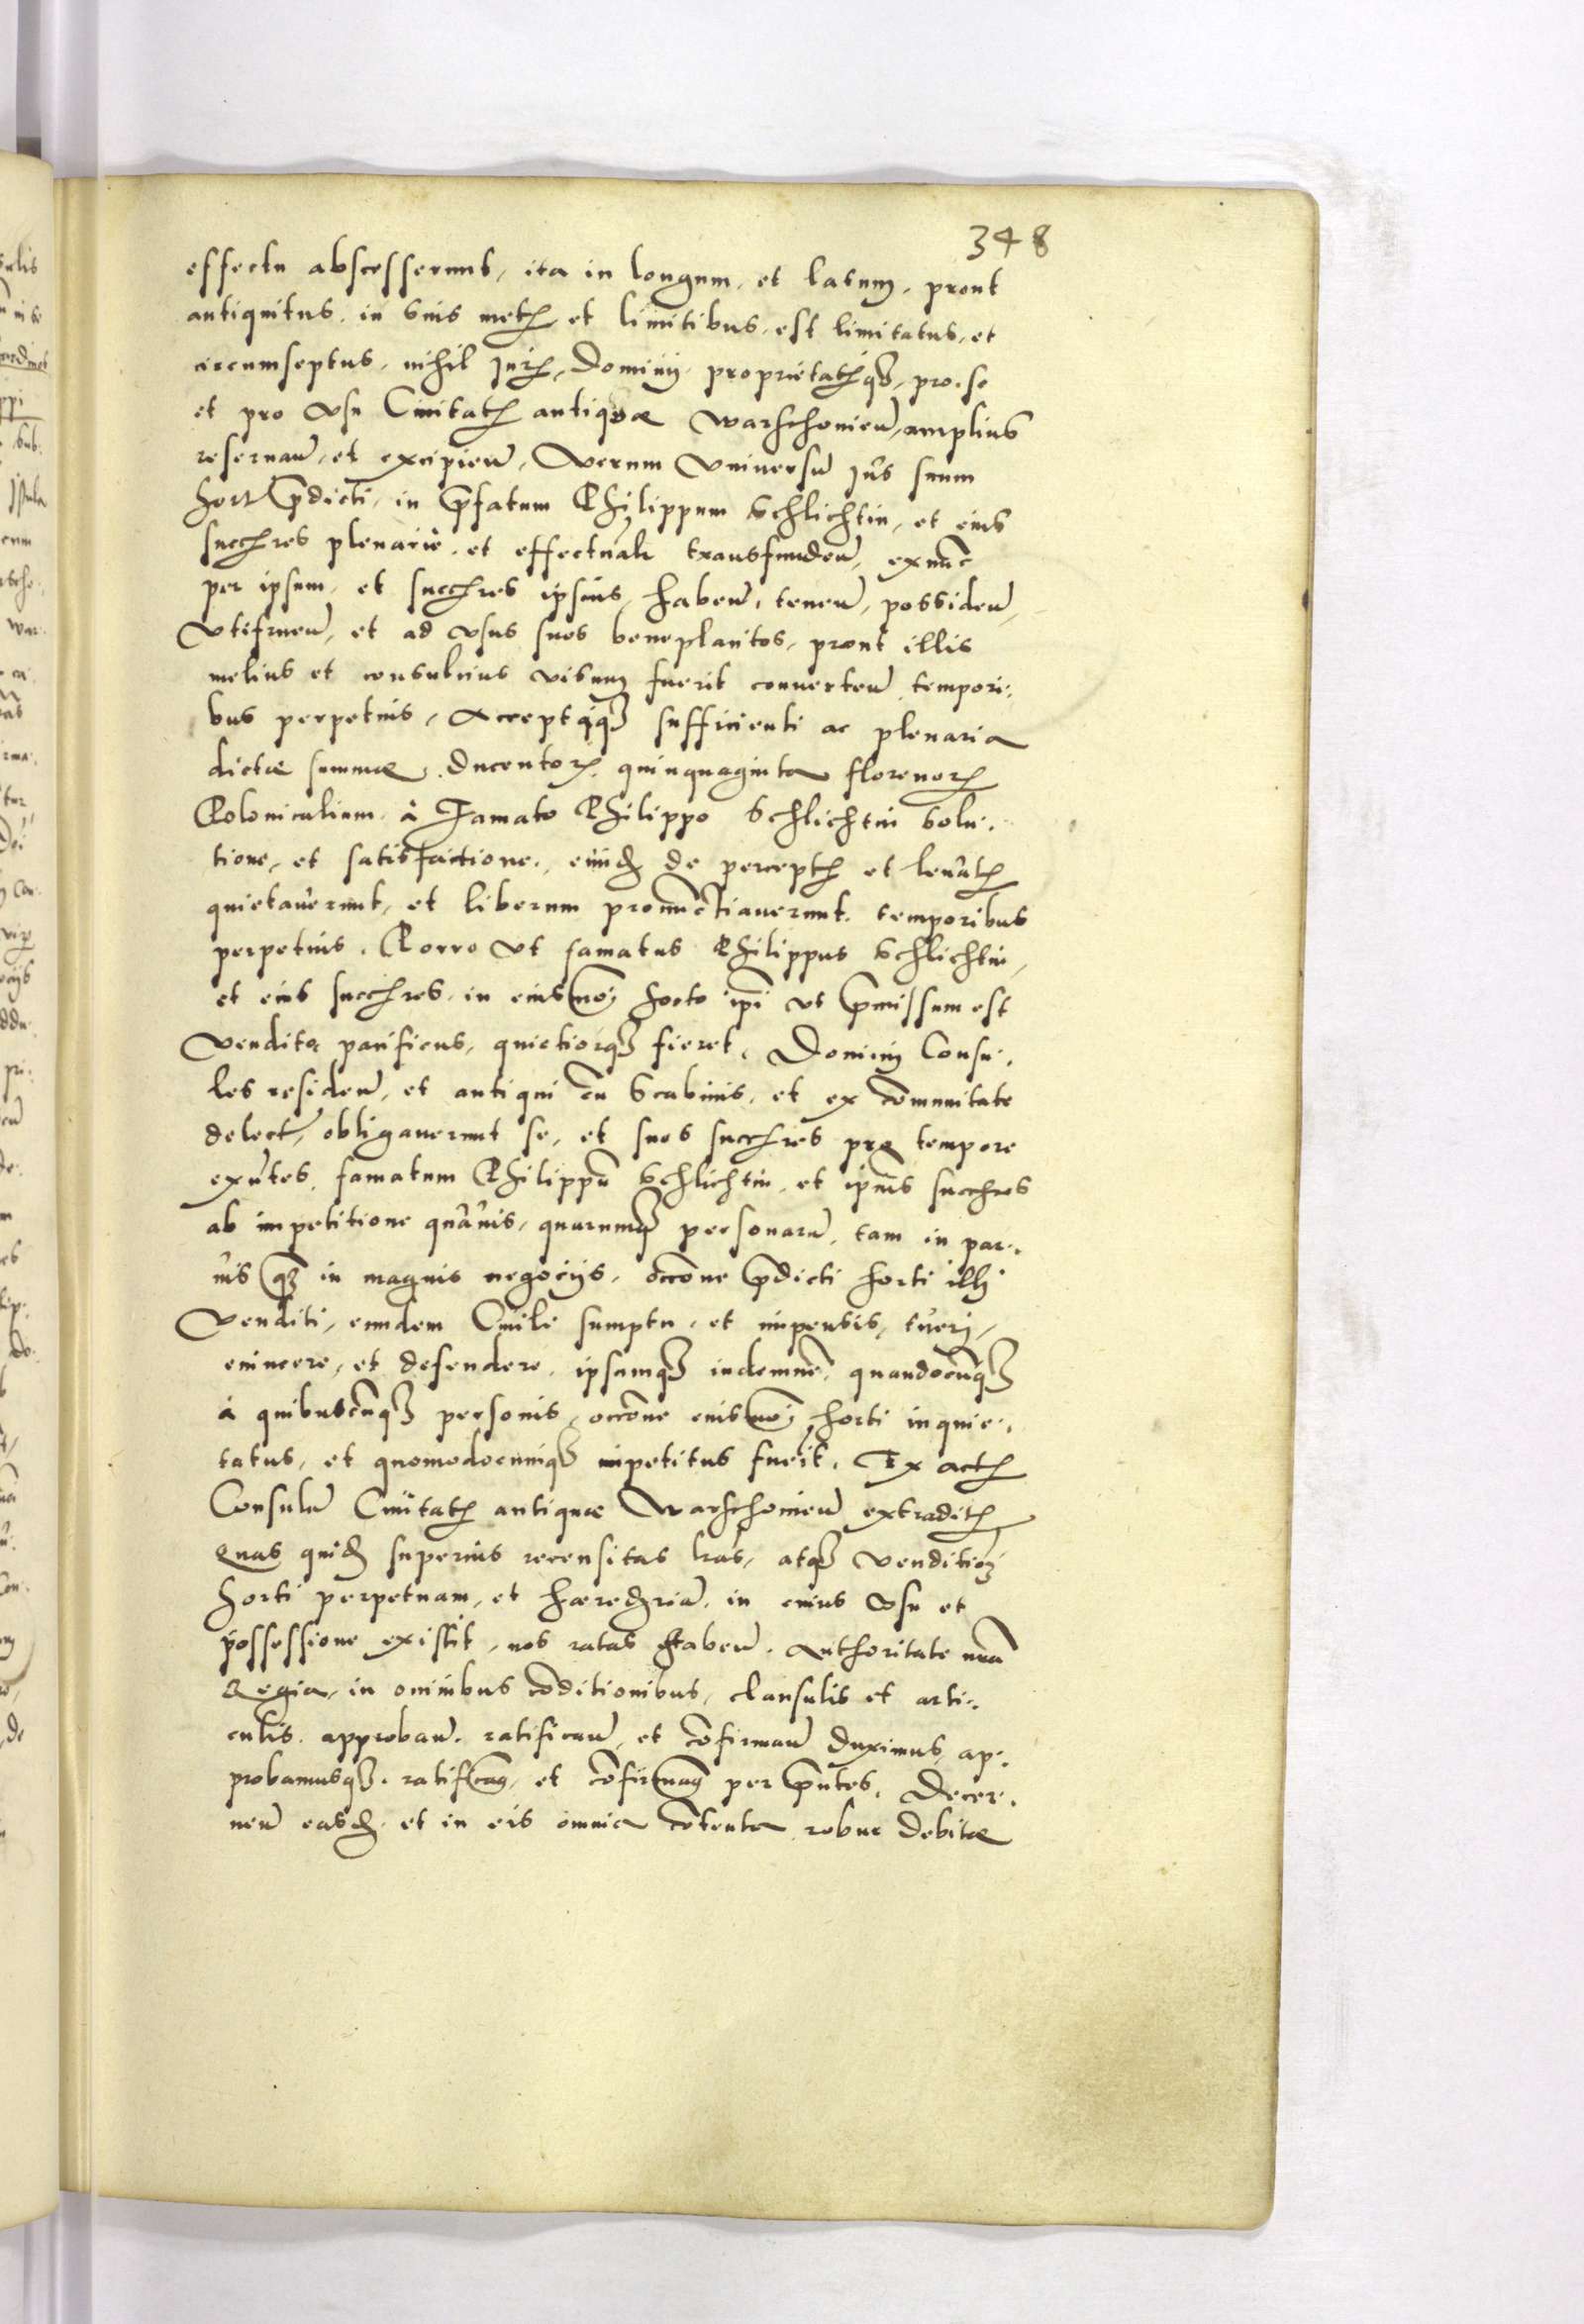 348
effectu abscesserunt, ita in longum, et latum, prout
antiquitus, in suis metis et limitibus, est limitatus, et
circumseptus, nihil Juris, Dominij, proprietatisqȝ, pro se
et pro Vsu Ciuitatis antiquæ Warschouien̄, amplius
reseruan̄, et excipien̄, Verum Vniuersū Jus suum
horti p̄dicti, in p̄fatum Philippum Schlichtin, et eius
succ̄res plenarie, et effectualr̄ transfunden̄, exnūc
per ipsum, et succ̄res ipsius, haben̄, tenen̄, possiden̄,
Vtifruen̄, et ad Vsus suos beneplacitos, prout illis
melius et consulcius visum fuerit conuerten̄, tempori-
bus perpetuis, Acceptaqȝ sufficienti ac plenaria
dictæ summæ, Ducentorū, quinquaginta florenorū
Polonicalium, à Famato Philippo Schlichtin solu-
tione, et satisfactione, eūd̄ de perceptis et leuatis
quietauerunt, et liberum pronūctiauerunt, temporibus
perpetuis. Porro Vt famatus Philippus Schlichtin,
et eius succ̄res, in eiusmōi horto ip̄i vt p̄missum est
Vendito pacificus, quietiorqȝ fieret, Domini Consu-
les residen̄, et antiqui cū Scabinis, et ex cōmunitate
delecti, obligauerunt se, et suos succ̄res pro tempore
exn̄tes, famatum Philippū Schlichtin, et ip̄ius succ̄res
ab impetitione quāuis, quarumqȝ personarū, tam in par-
uis qȝ in magnis negocijs, occ̄one p̄dicti horti illi
Venditi, eundem Ciuili sumptu, et impensis, tueri,
euincere, et defendere, ipsumqȝ indemnē, quandocūqȝ
à quibuscūqȝ personis, occ̄one eiusmōi horti inquie-
tatus, et quomodocunqȝ impetitus fuerit. Ex actis
Consulū Ciuitatis antiquæ Warschouien̄ extraditis
Quas quid̄ superius recensitas l̄ras, atqȝ venditiōȝ
horti perpetuam, et hæred̄riā, in cuius Vsu et
possessione existit, nos ratas haben̄. Authoritate n̄ra
Regia, in omnibus cōditionibus, clausulis et arti-
culis, approban̄, ratifican̄, et cōfirman̄ duximus, ap-
probamusqȝ, ratificam̄, et cōfirmam̄ per p̄ntes, Decer-
nen̄ easd̄, et in eis omnia cōtenta robur debitæ